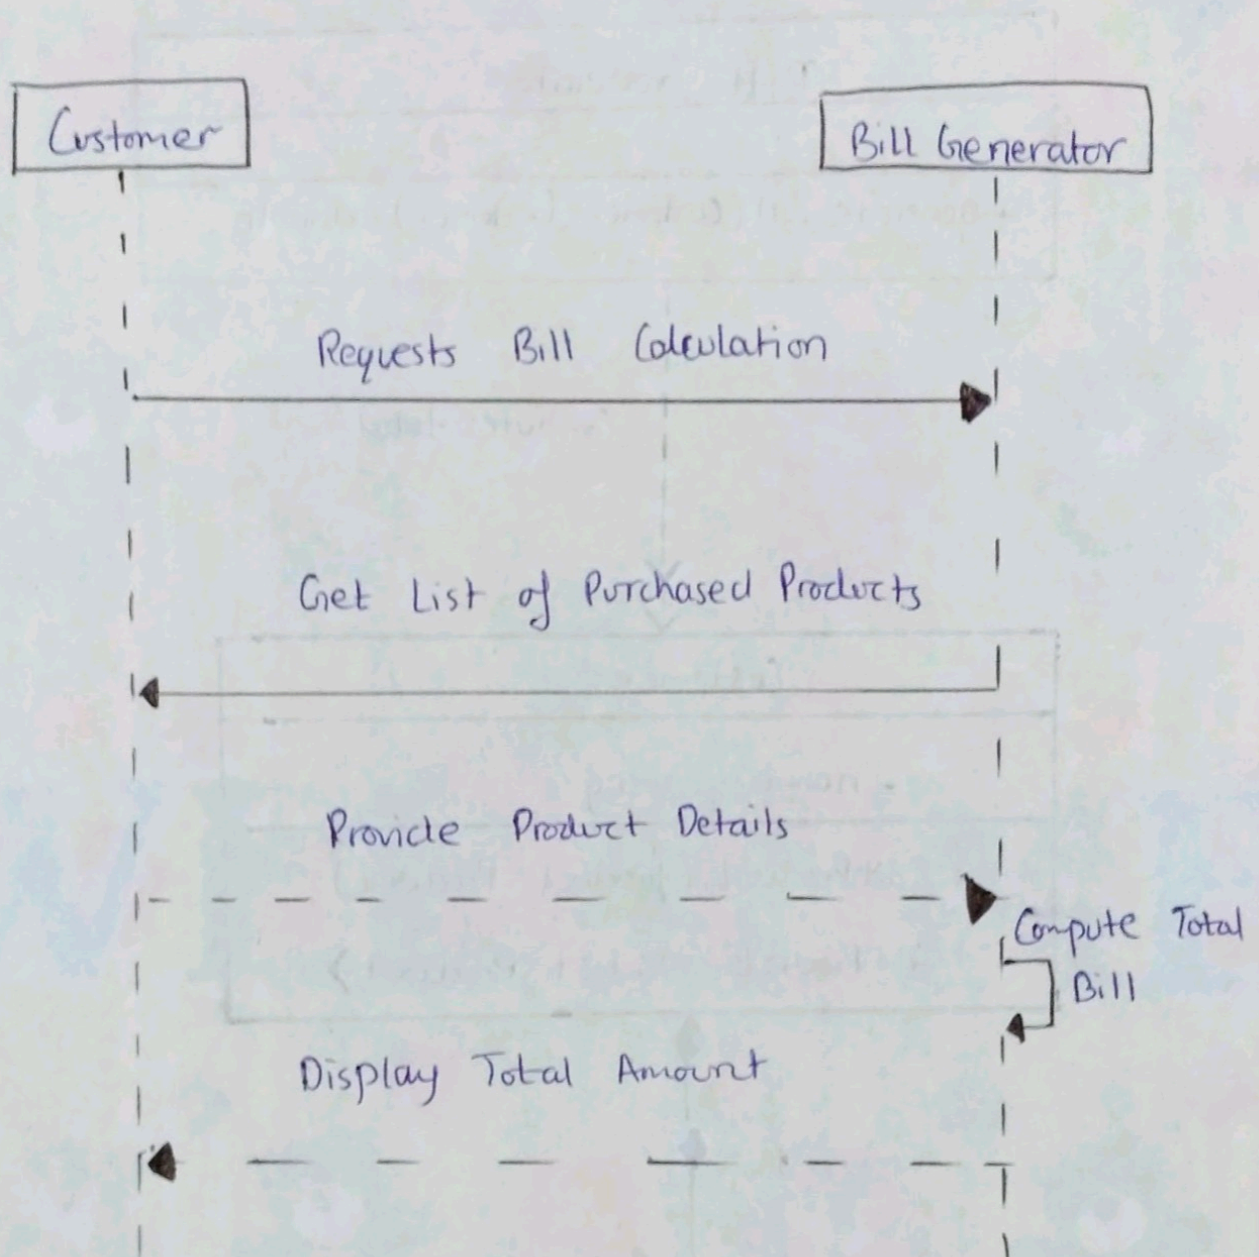 Customer
Bill Generator
Requests Bill Calculation
Get List of Purchased Products
Provide Product Details
Compute Total
Bill
Display Total Amount